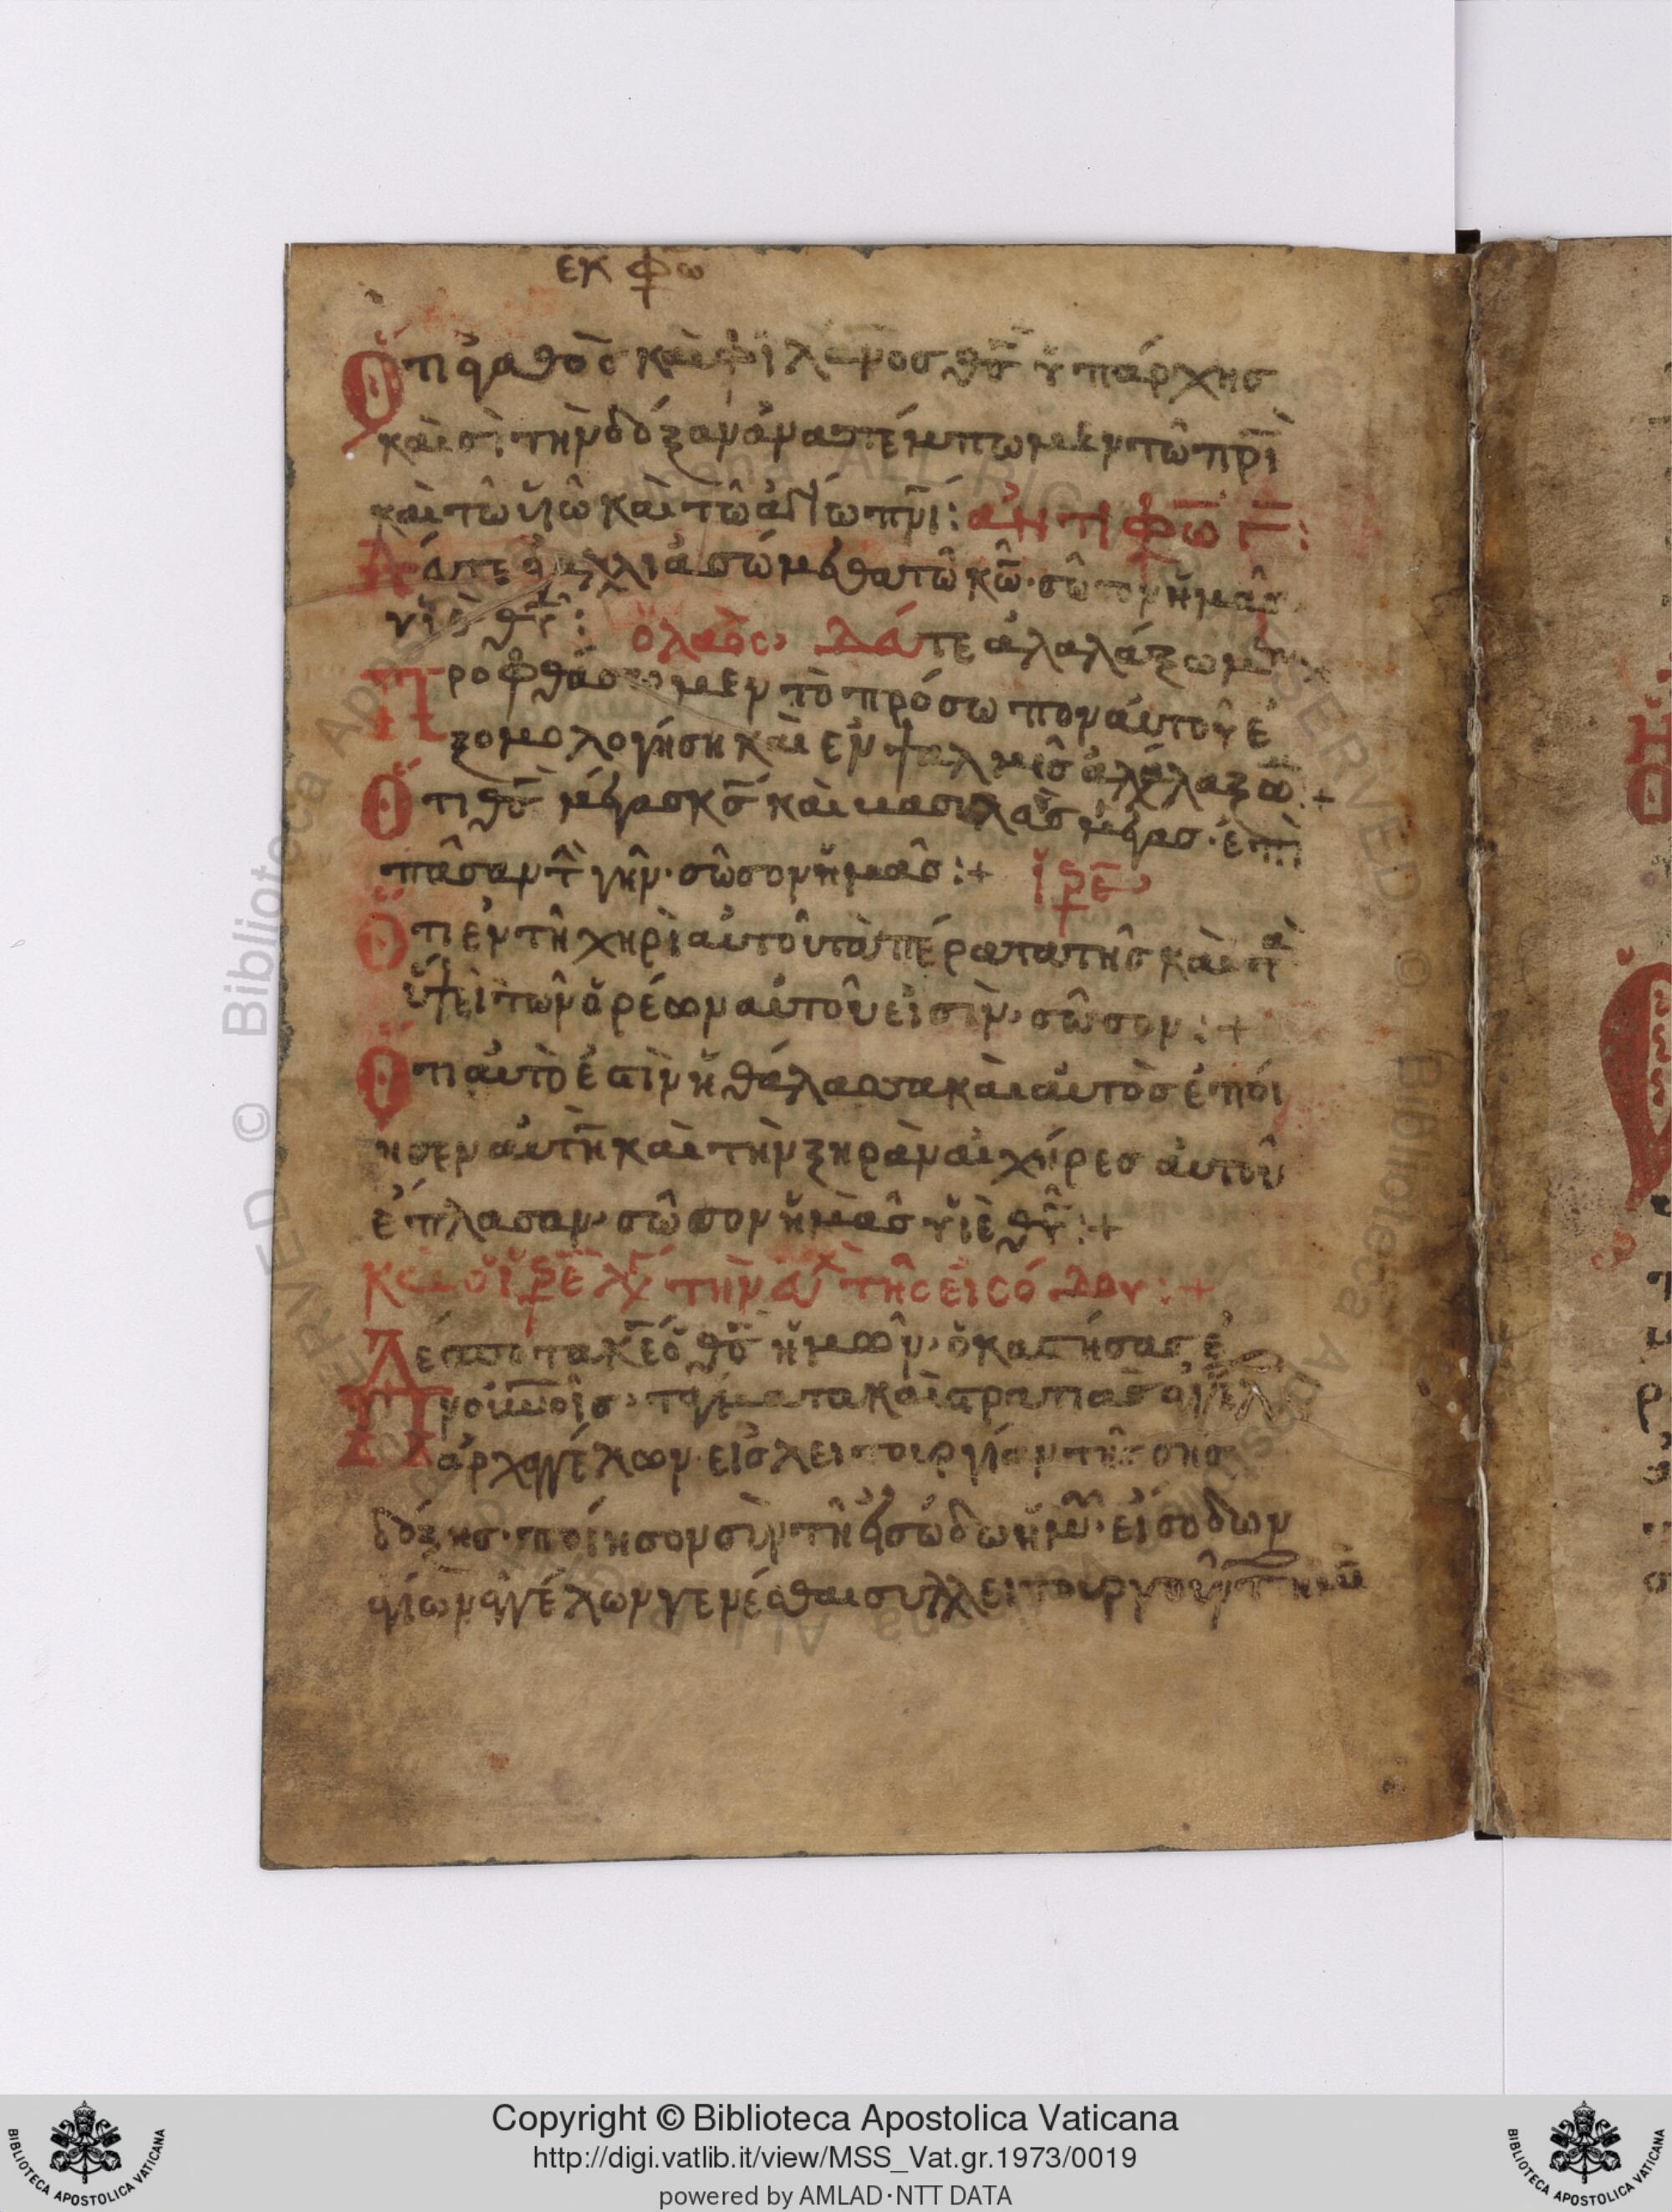 εκ φω
Ὅτι ἀγαθὸς καὶ φιλάνος θς ὑπάρχης
καὶ σὶ τὴν δόξαν ἀναπέμπωμεν τῶ πρὶ
καὶ τῶ υἱῶ καὶ τῶ ἁγίω πνι: ἀντιφω Γ:
Δεύτε ἀγαλλιασώμεθα τῶ κω· σῶσον ἡμᾶς
υἱὲ θυ:
ὁ λαὸς· Δεύτε ἀλαλάξωμεν
Προφθάσωμεν τὸ πρόσωπον ἀυτοῦ ἐ
ξομολογήση καὶ ἐν ψαλμοῖς ἀλαλάξω:+
Ὅτι θς μέγας κς καὶ βασιλεὺς μέγας· ἐπὶ
πᾶσαν τ γῆν· σῶσον ἡμᾶς:+ ἱρε
Ὅτι ἐν τῆ χηρὶ αὐτοῦ τὰ πέρατα τῆς καὶ τὰ
ὕψει τῶν ὀρέων αὐτοῦ εἰσὶν· σῶσον:+
Ὅτι αὐτὸ ἐστὶν ἡ θάλασσα καὶ αὐτὸς ἐποί
ησεν αὐτὴ καὶ τὴν ξηρὰν αἱ χήρες αὐτοῦ
ἔπλασαν· σῶσον ἡμᾶς υἱὲ θυ:+
Και ὁ ἱρε λγ τὴν εὐχ τῆς εἰσόδου:+
Δέσποτα κε ὁ θς ἡμῶν· ὁ καστήσας ἐ
ν οὐνοῖς· τάγματα καὶ στρατιὰς ἀγγέλ
ἀρχαγγέλων· εἰς λειτουργίαν τῆς σῆς
δόξης· ποίησον σὺν τῆ εἰσώδω ἡμῶν· εἴσοδων
ἁγίων ἀγγέλων γενέσθαι συλλειτουργούντ ἡμῖ
Copyright © Biblioteca Apostolica Vaticana
http://digi.vatlib.it/view/MSS_Vat.gr.1973/0019
powered by AMLAD·NTT DATA
BIBLIOTECA APOSTOLICA VATICANA
BIBLIOTECA APOSTOLICA VATICANA